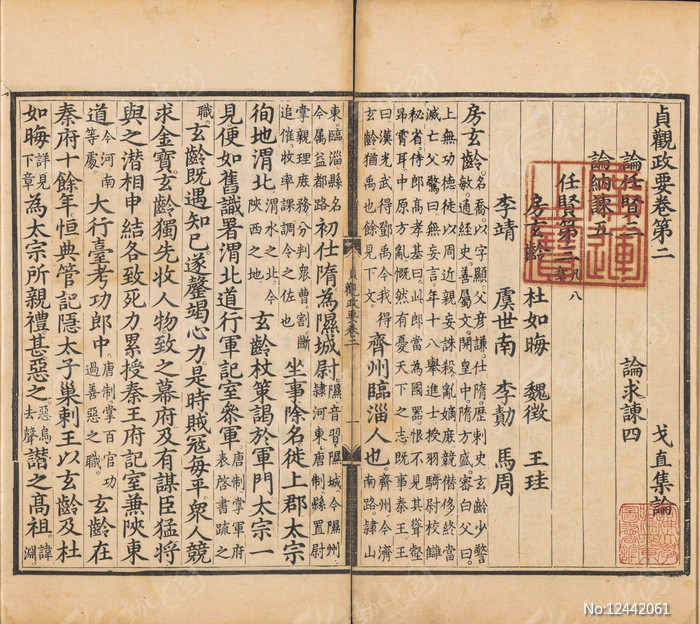 貞觀政要卷第二 戈直集論
論任賢三 論求諫四
論納諫五
任賢第三 凡八章
房玄齡 杜如晦 魏徵 王珪
李靖 虞世南 李勣 馬周
房玄齡。名喬。以字顯。父彥謙。仕隋。歷刺史。玄齡少警
敏。通經史。善屬文。開皇中。隋方盛。密白父曰。
上無功德。徒以周近親。妄誅殺。亂嫡庶。競僭侈。終當
滅亡。父驚曰。無妄言。年十八。舉進士。授羽騎尉。校讎
秘省。侍郎高孝基曰。此郎當為國器。恨不見其聳壑
昂霄耳。中原方亂。慨然有憂天下之志。既事秦王。王
曰。漢光武得鄧禹。今我得
玄齡。猶禹也。餘見下文。
齊州臨淄人也。齊州。今濟
南路。隸山
貞觀政要卷二 一
東。臨淄縣名。
今屬益都路。
初仕隋為隰城尉。隰音習。隰城。今隰州。
隸河東。唐制。縣置尉
掌親理庶務。分判衆曹。割斷
追催。收率課調。今之佐也
坐事除名徙上郡太宗
徇地渭北 渭水之北。今
陝西之地。
玄齡杖策謁於軍門太宗一
見便如舊識署渭北道行軍記室參軍 唐制掌軍府
表啓書疏之
職。玄齡既遇知己遂罄竭心力是時賊寇每平衆人競
求金寶玄齡獨先收人物致之幕府及有謀臣猛將
與之潛相申結各致死力累授秦王府記室兼陝東
道 今河南
等處。
大行臺考功郎中 唐制掌百官功
過善惡之職。
玄齡在
秦府十餘年恒典管記隱太子巢剌王以玄齡及杜
如晦 詳見
下章
為太宗所親禮甚惡之 惡烏
去聲
譖之高祖 諱
淵。
No:12442061